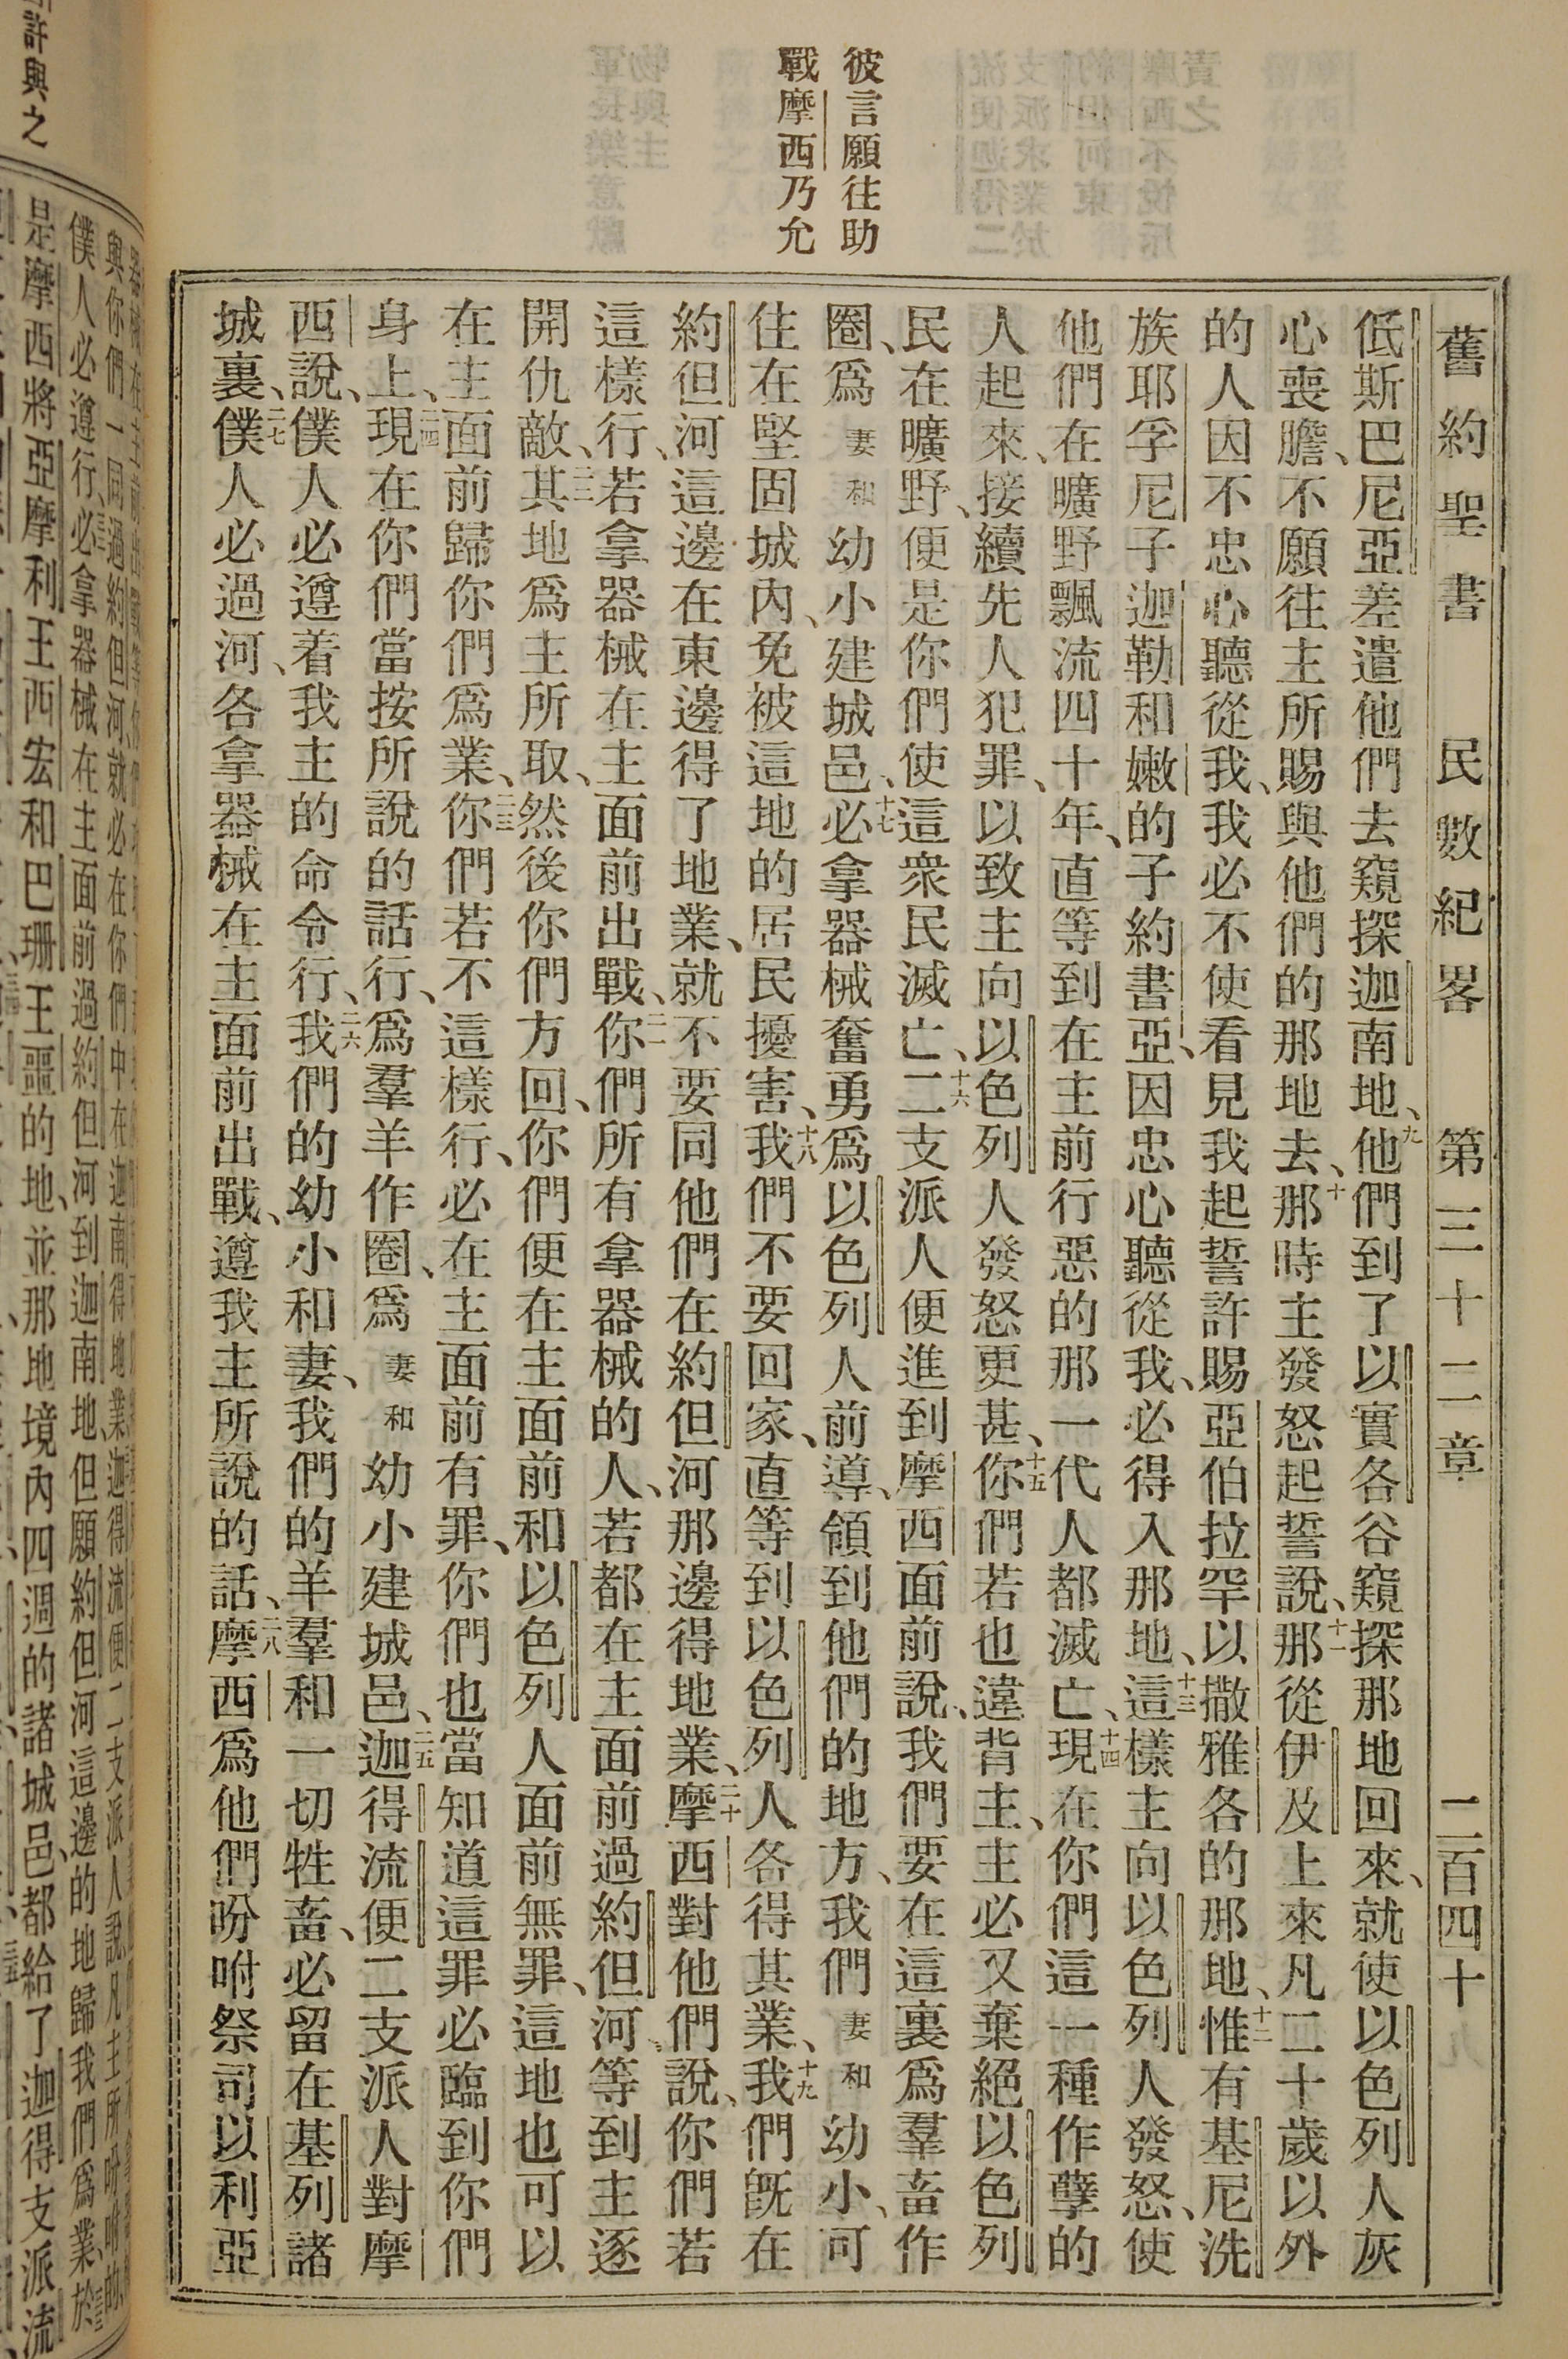 彼言願往助
戰摩西乃允
舊約聖書 民數紀畧 第三十二章 二百四十
低斯巴尼亞差遣他們去窺探迦南地、九他們到了以實各谷窺探那地回來、就使以色列人灰
心喪膽、不願往主所賜與他們的那地去、十那時主發怒起誓說、十一那從伊及上來凡二十歲以外
的人因不忠心聽從我、我必不使看見我起誓許賜亞伯拉罕以撒雅各的那地、十二惟有基尼洗
族耶孚尼子迦勒和嫩的子約書亞、因忠心聽從我、必得入那地、十三這樣主向以色列人發怒、使
他們在曠野飄流四十年、直等到在主前行惡的那一代人都滅亡、十四現在你們這一種作孽的
人起來、接續先人犯罪、以致主向以色列人發怒更甚、十五你們若也違背主、主必又棄絕以色列
民在曠野、便是你們使這衆民滅亡、十六二支派人便進到摩西面前說、我們要在這裏爲羣畜作
圈、爲妻和幼小建城邑、十七必拿器械奮勇爲以色列人前導、領到他們的地方、我們妻和幼小、可
住在堅固城內、免被這地的居民擾害、十八我們不要回家、直等到以色列人各得其業、十九我們旣在
約但河這邊在東邊得了地業、就不要同他們在約但河那邊得地業、二十摩西對他們說、你們若
這樣行、若拿器械在主面前出戰、二一你們所有拿器械的人、若都在主面前過約但河、等到主逐
開仇敵、二二其地爲主所取、然後你們方回、你們便在主面前和以色列人面前無罪、這地也可以
在主面前歸你們爲業、二三你們若不這樣行、必在主面前有罪、你們也當知道這罪必臨到你們
身上、二四現在你們當按所說的話行、爲羣羊作圈、爲妻和幼小建城邑、二五迦得流便二支派人對摩
西說、僕人必遵着我主的命令行、二六我們的幼小和妻、我們的羊羣和一切牲畜、必留在基列諸
城裏、二七僕人必過河、各拿器械在主面前出戰、遵我主所說的話、二八摩西爲他們吩咐祭司以利亞
許與之
僕人必遵行、必拿器械在主面前過約但河到迦南地、但願約但河這邊的地歸我們爲業、於
是摩西將亞摩利王西宏和巴珊王噩的地、並那地境內四週的諸城邑、都給了迦得支派流